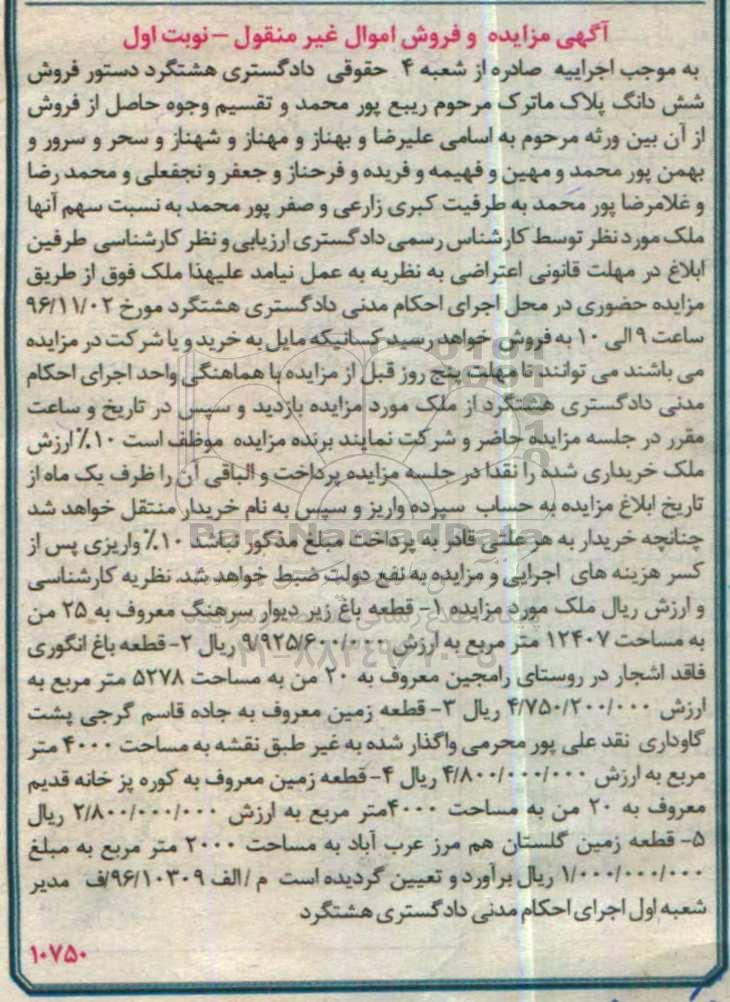 آگهی مزایده و فروش اموال غیر منقول - نوبت اول
به موجب اجراییه صادره از شعبه ۴ حقوقی دادگستری هشتگرد دستور فروش
شش دانگ پلاک ماترک مرحوم ربیع پور محمد و تقسیم وجوه حاصل از فروش
از آن بین ورثه مرحوم به اسامی علیرضا و بهناز و مهناز و شهناز و سحر و سرور و
بهمن پور محمد و مهین و فهیمه و فریده و فرحناز و جعفر و نجفعلی و محمد رضا
و غلامرضا پور محمد به طرفیت کبری زارعی و صفر پور محمد به نسبت سهم آنها
ملک مورد نظر توسط کارشناس رسمی دادگستری ارزیابی و نظر کارشناسی طرفین
ابلاغ در مهلت قانونی اعتراضی به نظریه به عمل نیامد علیهذا ملک فوق از طریق
مزایده حضوری در محل اجرای احکام مدنی دادگستری هشتگرد مورخ ۹۶/۱۱/۰۲
ساعت ۹ الی ۱۰ به فروش خواهد رسید کسانیکه مایل به خرید و یا شرکت در مزایده
می باشند می توانند تا مهلت پنج روز قبل از مزایده با هماهنگی واحد اجرای احکام
مدنی دادگستری هشتگرد از ملک مورد مزایده بازدید و سپس در تاریخ و ساعت
مقرر در جلسه مزایده حاضر و شرکت نمایند برنده مزایده موظف است ۱۰٪ ارزش
ملک خریداری شده را نقدا در جلسه مزایده پرداخت و الباقی آن را ظرف یک ماه از
تاریخ ابلاغ مزایده به حساب سپرده واریز و سپس به نام خریدار منتقل خواهد شد
چنانچه خریدار به هر علتی قادر به پرداخت مبلغ مذکور نباشد ۱۰٪ واریزی پس از
کسر هزینه های اجرایی و مزایده به نفع دولت ضبط خواهد شد. نظریه کارشناسی
و ارزش ریال ملک مورد مزایده ۱- قطعه باغ زیر دیوار سرهنگ معروف به ۲۵ من
به مساحت ۱۲۴۰۷ متر مربع به ارزش ۹/۹۲۵/۶۰۰/۰۰۰ ریال ۲- قطعه باغ انگوری
فاقد اشجار در روستای رامجین معروف به ۲۰ من به مساحت ۵۲۷۸ متر مربع به
ارزش ۴/۷۵۰/۲۰۰/۰۰۰ ریال ۳- قطعه زمین معروف به جاده قاسم گرجی پشت
گاوداری نقد علی پور محرمی واگذار شده به غیر طبق نقشه به مساحت ۴۰۰۰ متر
مربع به ارزش ۴/۸۰۰/۰۰۰/۰۰۰ ریال ۴- قطعه زمین معروف به کوره پز خانه قدیم
معروف به ۲۰ من به مساحت ۴۰۰۰متر مربع به ارزش ۲/۸۰۰/۰۰۰/۰۰۰ ریال
۵- قطعه زمین گلستان هم مرز عرب آباد به مساحت ۲۰۰۰ متر مربع به مبلغ
۱/۰۰۰/۰۰۰/۰۰۰ ریال برآورد و تعیین گردیده است م /الف ۹۶/۱۰۳۰۹/ف مدیر
شعبه اول اجرای احکام مدنی دادگستری هشتگرد
۱۰۷۵۰
ParsNamadData
۰۲۱-۸۸۳۴۹۶۷۰-۵